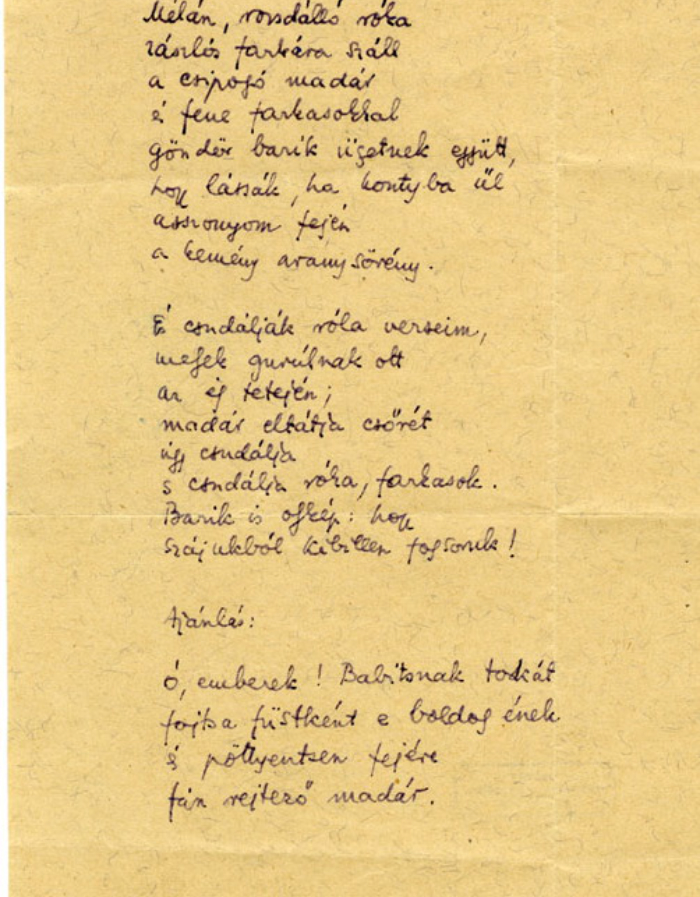 Mélán, rozsdálló róka
zászlós farkára száll
a csipogó madár
é fene farkasokkal
göndör barik ügetnek együtt,
hogy lássák, ha kontyba ül
asszonyom fején
a kemény aranysörény.
É csudálják róla verseim,
mefek gurúlnak ott
az ég tetején;
madár eltátja csőrét
úgy csudálja
s csudálja róka, farkasok.
Barik is ofkép: hogy
szájukból kibillen fogsoruk!
Ajánlás:
Ó, emberek! Babitsnak torkát
fojtsa füstként e boldog ének
é pöttyentsen fejére
fán rejtező madár.